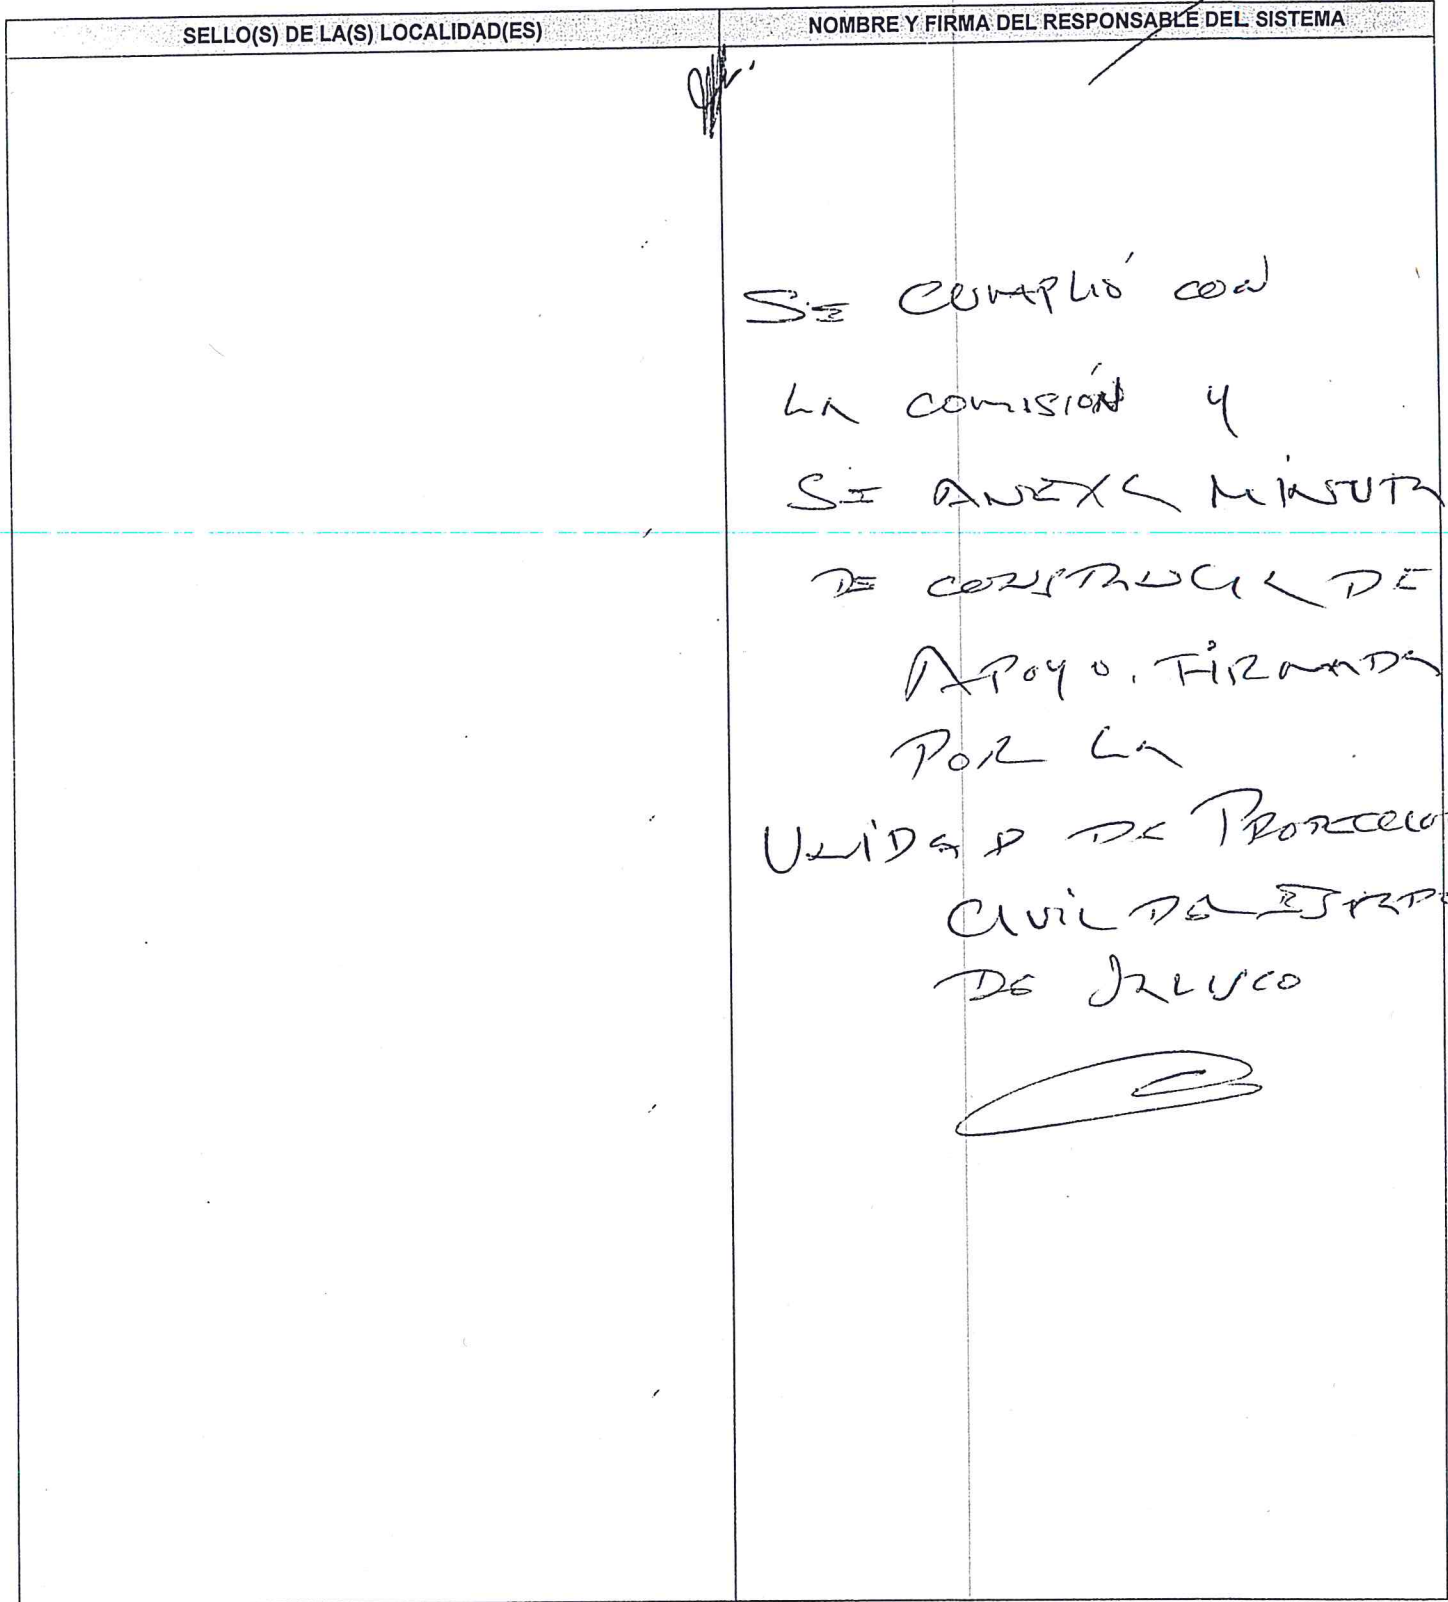 SELLO(S) DE LA(S) LOCALIDAD(ES)
NOMBRE Y FIRMA DEL RESPONSABLE DEL SISTEMA
SE CUMPLIÓ CON
LA COMISIÓN Y
SE ANEXA MINUTA
DE CONSTANCIA DE
APOYO. FIRMADA
POR LA
UNIDAD DE PROTECCIÓ
CIVIL DEL ESTADO
DE JALISCO